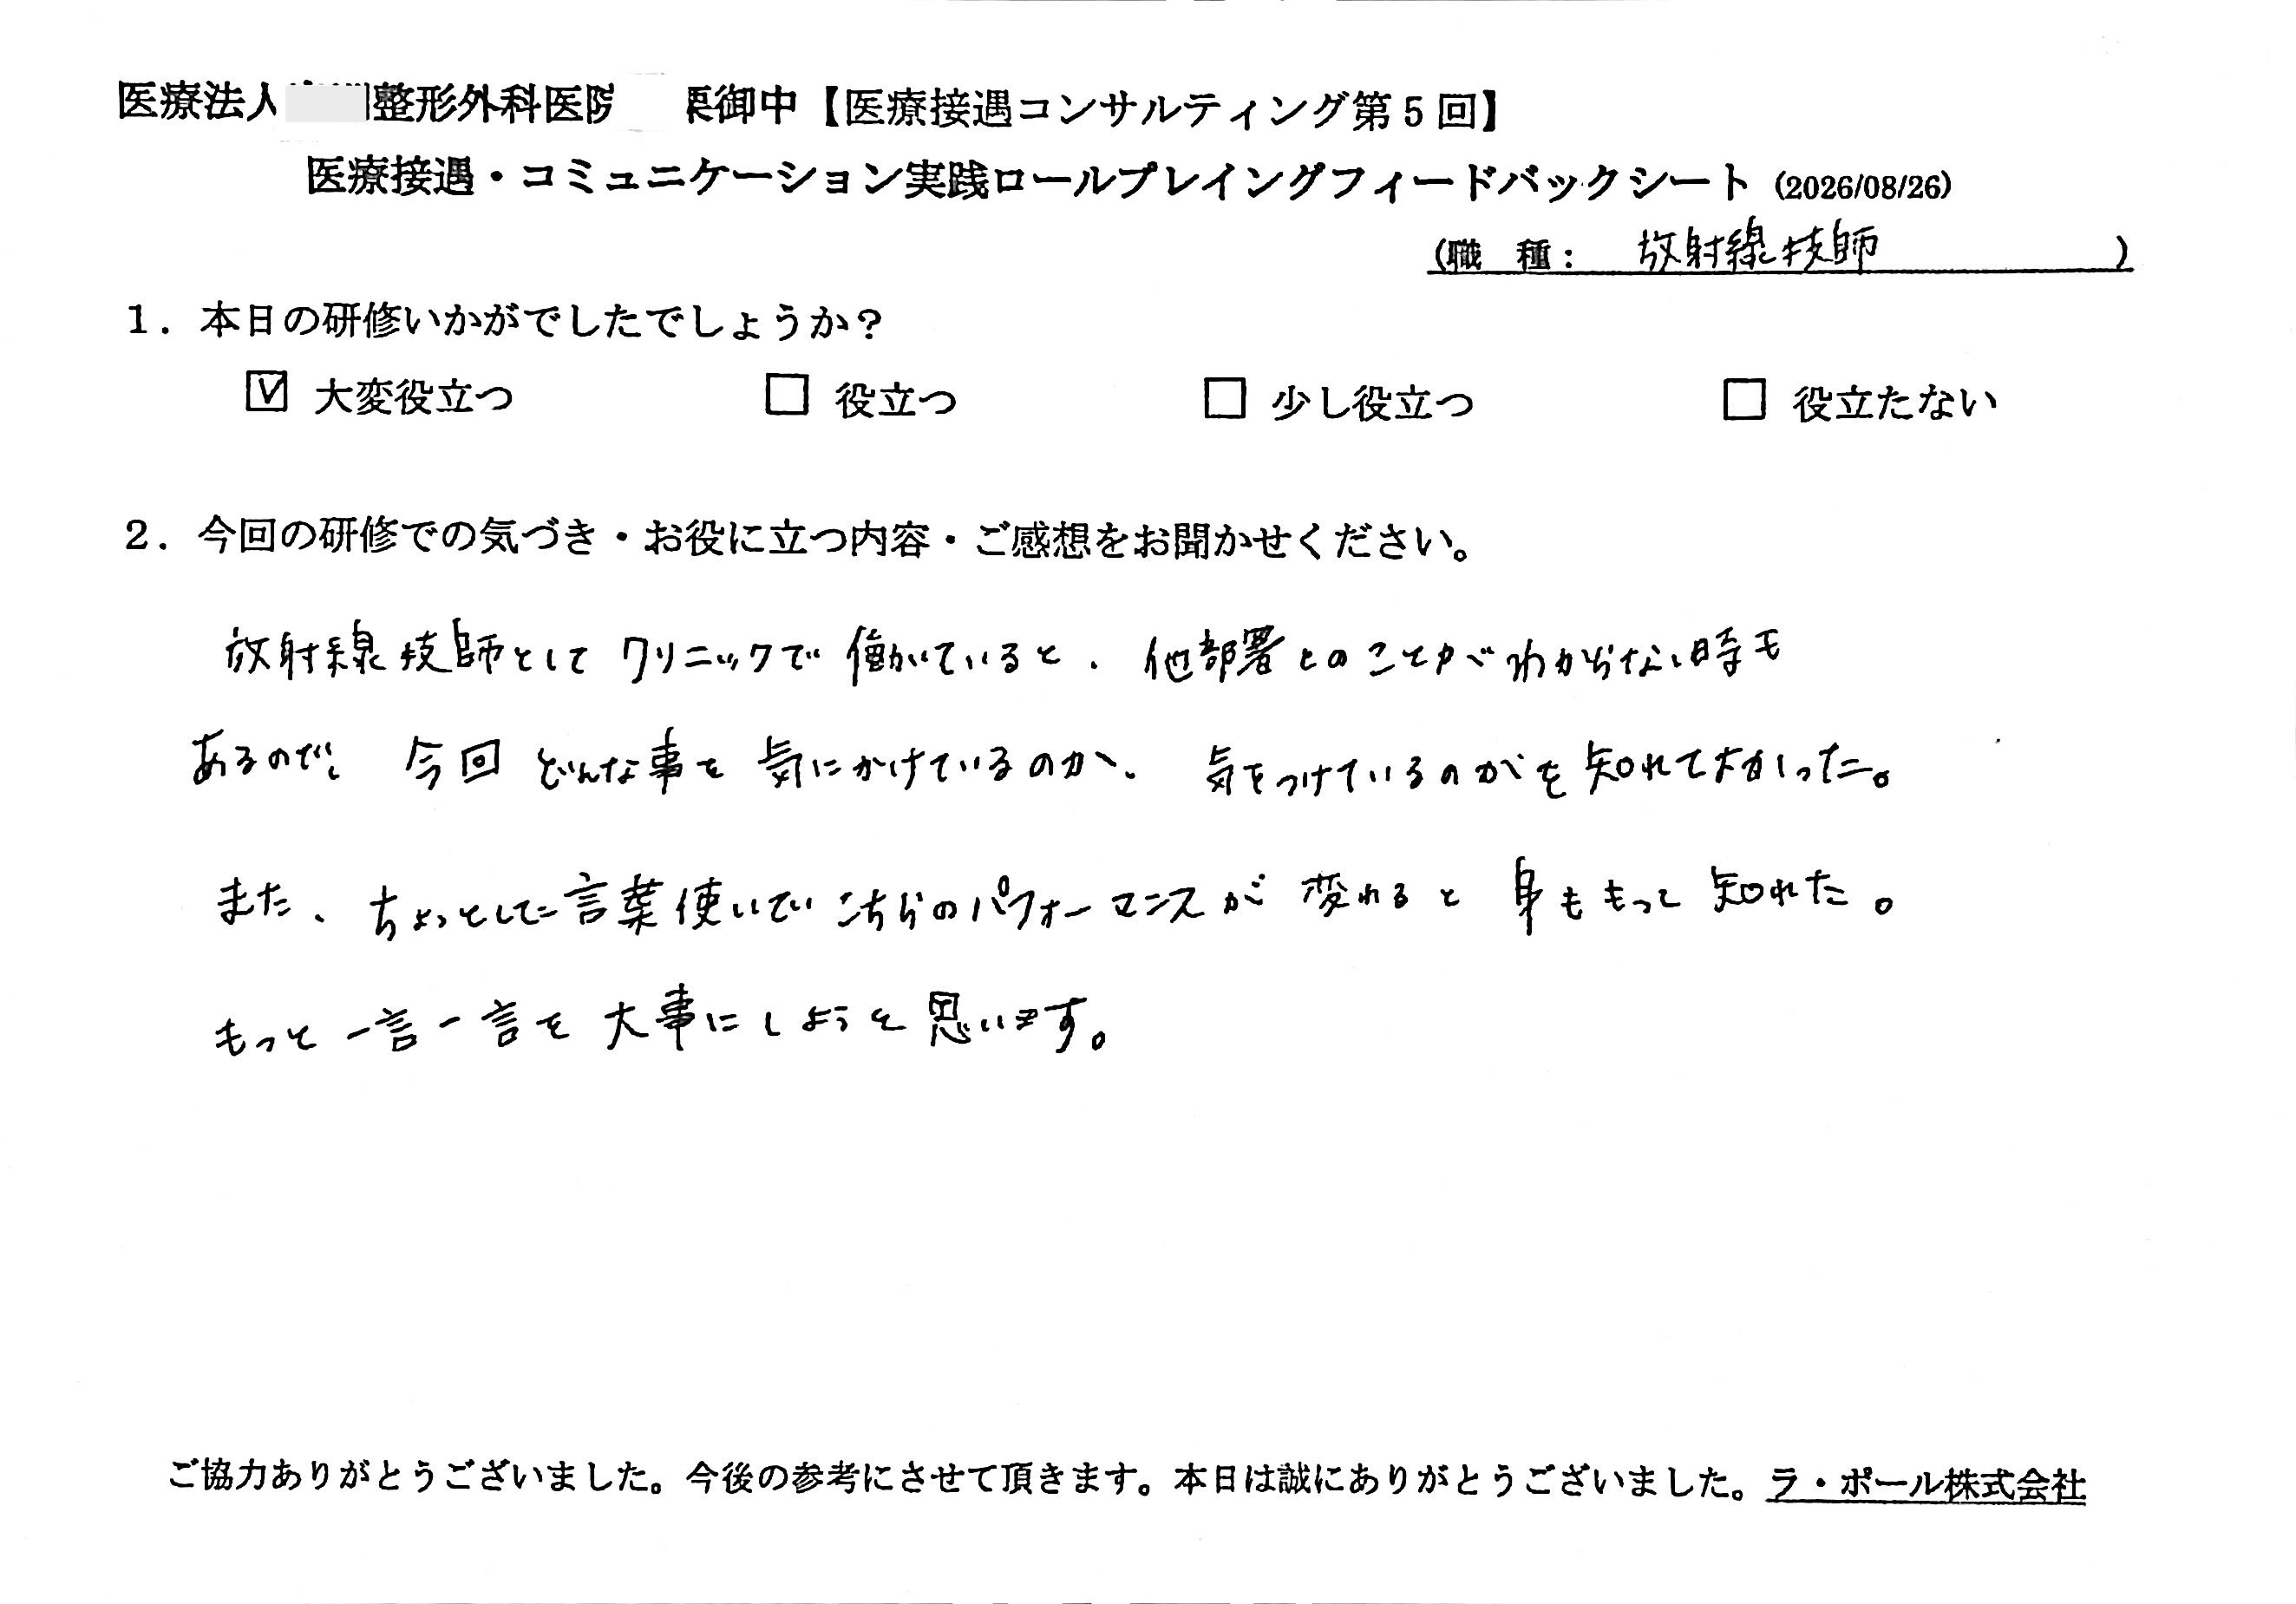 医療法人 整形外科医院 御中【医療接遇コンサルティング第5回】
医療接遇・コミュニケーション実践ロールプレイングフィードバックシート（2026/08/26）
（職 種： 放射線技師 ）
1．本日の研修いかがでしたでしょうか？
☑ 大変役立つ □ 役立つ □ 少し役立つ □ 役立たない
2．今回の研修での気づき・お役に立つ内容・ご感想をお聞かせください。
放射線技師として クリニックで 働いていると、他部署とのことがわからない時も
あるので、 今回 どんな事を 気にかけているのか、 気をつけているのかを 知れてよかった。
また、ちょっとした言葉使いで こちらのパフォーマンスが 変れると 身をもって 知れた。
もっと 一言一言を 大事にしようと 思います。
ご協力ありがとうございました。今後の参考にさせて頂きます。本日は誠にありがとうございました。ラ・ポール株式会社